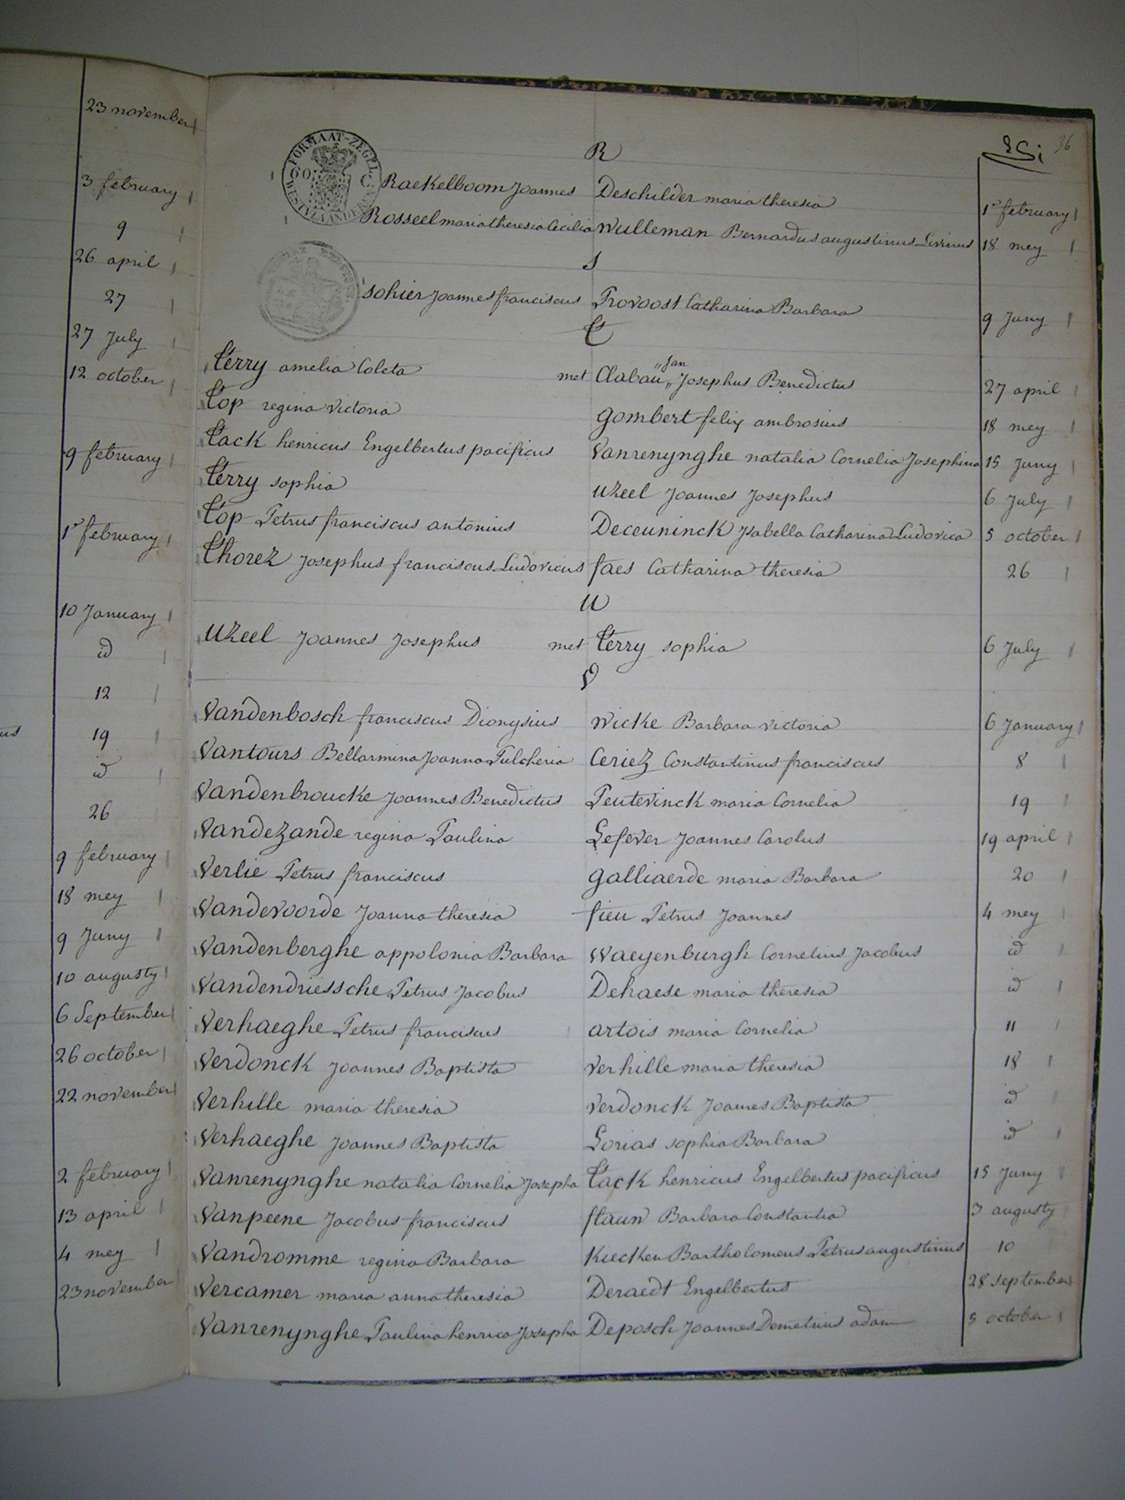 23 november
3 february
9
26 april
27
27 July
12 october
9 february
1r february
10 January
id
12
19
id
26
9 february
18 mey
9 Juny
10 augusty
6 September
26 october
22 november
2 february
13 april
4 mey
23 november
us
36
R
FORMAAT-ZEGEL
60 C.
Raekelboom Joannes Deschilder maria theresia 1r february
Rosseel maria theresia Cecilia Wulleman Bernardus augustinus Livinus 18 mey
S
Sohier Joannes franciscus Provoost Catharina Barbara 9 Juny
T
Terry amelia Coleta met Clabau "Jan" Josephus Benedictus 27 april
Top regina Victoria Gombert felix ambrosius 18 mey
Tack henricus Engelbertus pacificus Vanrenynghe natalia Cornelia Josephina 15 Juny
Terry sophia Uzeel Joannes Josephus 6 July
Top Petrus franciscus antonius Deceuninck Isabella Catharina Ludovica 5 october
Thorez Josephus franciscus Ludovicus faes Catharina theresia 26
U
Uzeel Joannes Josephus met Terry sophia 6 July
V
Vandenbosch franciscus Dionysius Wicke Barbara victoria 6 January
Vantours Bellarmina Joanna Pulcheria Ceriez Constantinus franciscus 8
Vandenbroucke Joannes Benedictus Peutevinck maria Cornelia 19
Vandezande regina Paulina Lefever Joannes Carolus 19 april
Verlie Petrus franciscus Galliaerde maria Barbara 20
Vandevoorde Joanna theresia fieu Petrus Joannes 4 mey
Vandenberghe appolonia Barbara Waeyenburgh Cornelius Jacobus id
Vandendriessche Petrus Jacobus Dehaese maria theresia id
Verhaeghe Petrus franciscus artois maria Cornelia 11
Verdonck Joannes Baptista Verhille maria theresia 18
Verhille maria theresia Verdonck Joannes Baptista id
Verhaeghe Joannes Baptista Lorias sophia Barbara id
Vanrenynghe natalia Cornelia Josepha Tack henricus Engelbertus pacificus 15 Juny
Vanpeene Jacobus franciscus Staun Barbara Constantia 3 augusty
Vandromme regina Barbara Kiecken Bartholomeus Petrus augustinus 10
Vercamer maria anna theresia Deraedt Engelbertus 28 september
Vanrenynghe Paulina henrica Josepha Deposch Joannes Demetrius adam 5 october